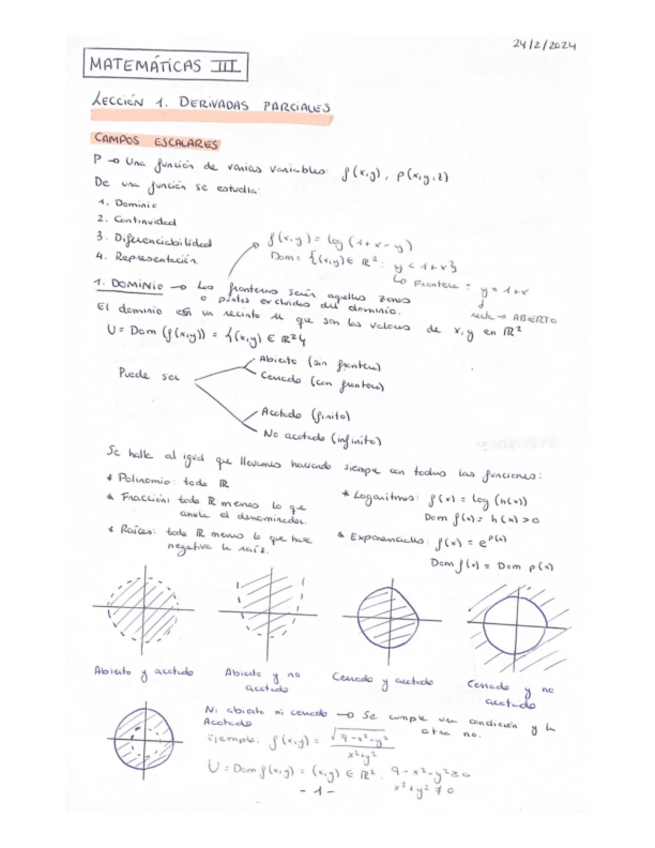 24/2/2024
MATEMÁTICAS III
LECCIÓN 1. DERIVADAS PARCIALES
CAMPOS ESCALARES
P → Una función de varias variables: f(x,y), p(x,y,z)
De una función se estudia:
1. Dominio
2. Continuidad
3. Diferenciabilidad
4. Representación
f(x,y) = log (1+x-y)
Dom = {(x,y) ∈ ℝ²: y < 1+x}
↳ Frontera = y = 1+x
recta → ABIERTO
1. DOMINIO → Las fronteras serán aquellas zonas
o puntos excluidos del dominio.
El dominio es un recinto U que son los valores de x,y en ℝ²
U = Dom (f(x,y)) = {(x,y) ∈ ℝ²}
Puede ser
Abierto (sin frontera)
Cerrado (con frontera)
Acotado (finito)
No acotado (infinito)
Se halla al igual que llevamos haciendo siempre con todas las funciones:
* Polinomio: todo ℝ
* Fracción: todo ℝ menos lo que
anule el denominador.
* Raíces: todo ℝ menos lo que hace
negativa la raíz.
* Logaritmos: f(x) = log (h(x))
Dom f(x) = h(x) > 0
* Exponenciales: f(x) = e^p(x)
Dom f(x) = Dom p(x)
Abierto y acotado
Abierto y no
acotado
Cerrado y acotado
Cerrado y no
acotado
Ni abierto ni cerrado → Se cumple una condición y la
otra no.
Acotado
Ejemplo: f(x,y) = √(9-x²-y²) / x²+y²
U = Dom f(x,y) = (x,y) ∈ ℝ². 9-x²-y² ≥ 0
x²+y² ≠ 0
- 1 -